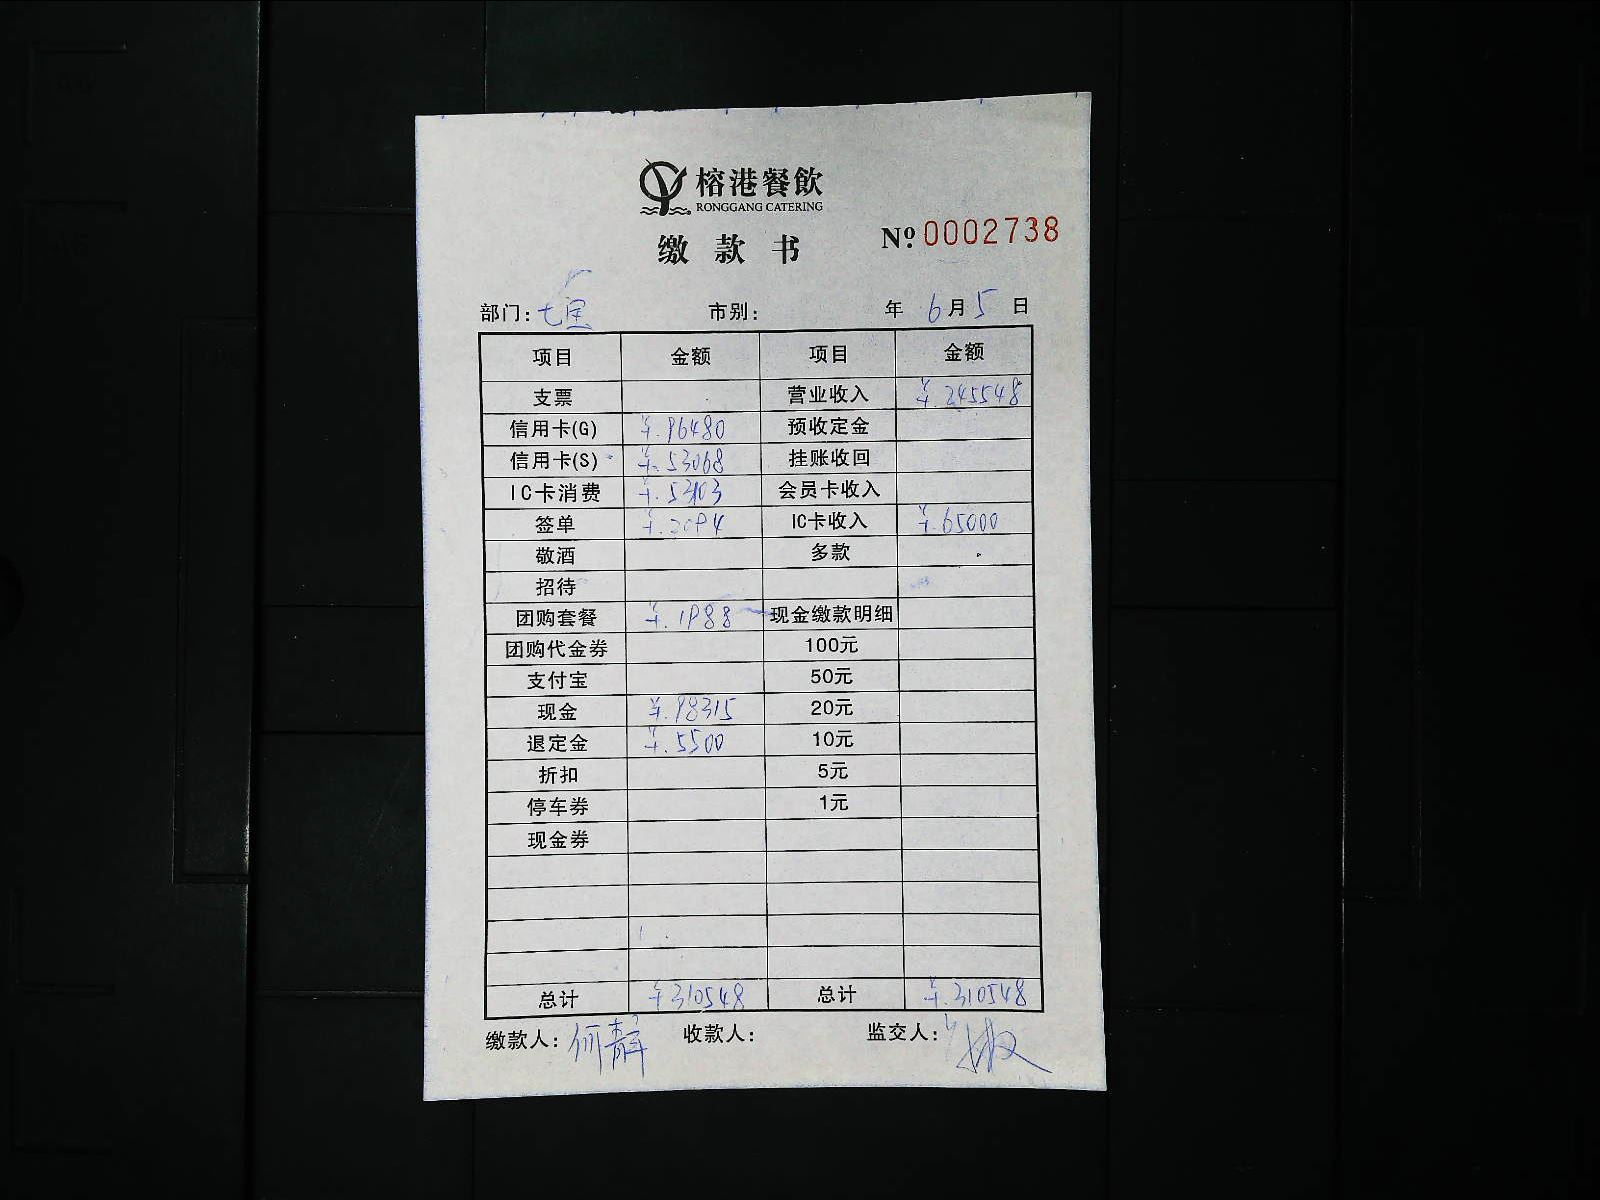 榕港餐飲
RONGGANG CATERING
缴款书
№:0002738
部门: 市别: 年 6月5日
项目 金额 项目 金额
支票 营业收入 ¥.245548
信用卡(G) ¥.96480 预收定金
信用卡(S) ¥.53068 挂账收回
IC卡消费 ¥.53103 会员卡收入
签单 ¥.2094 IC卡收入 ¥.65000
敬酒 多款
招待
团购套餐 ¥.1988 现金缴款明细
团购代金券 100元
支付宝 50元
现金 ¥.98315 20元
退定金 ¥.5500 10元
折扣 5元
停车券 1元
现金券
总计 ¥310548 总计 ¥.310548
缴款人:何静 收款人: 监交人: